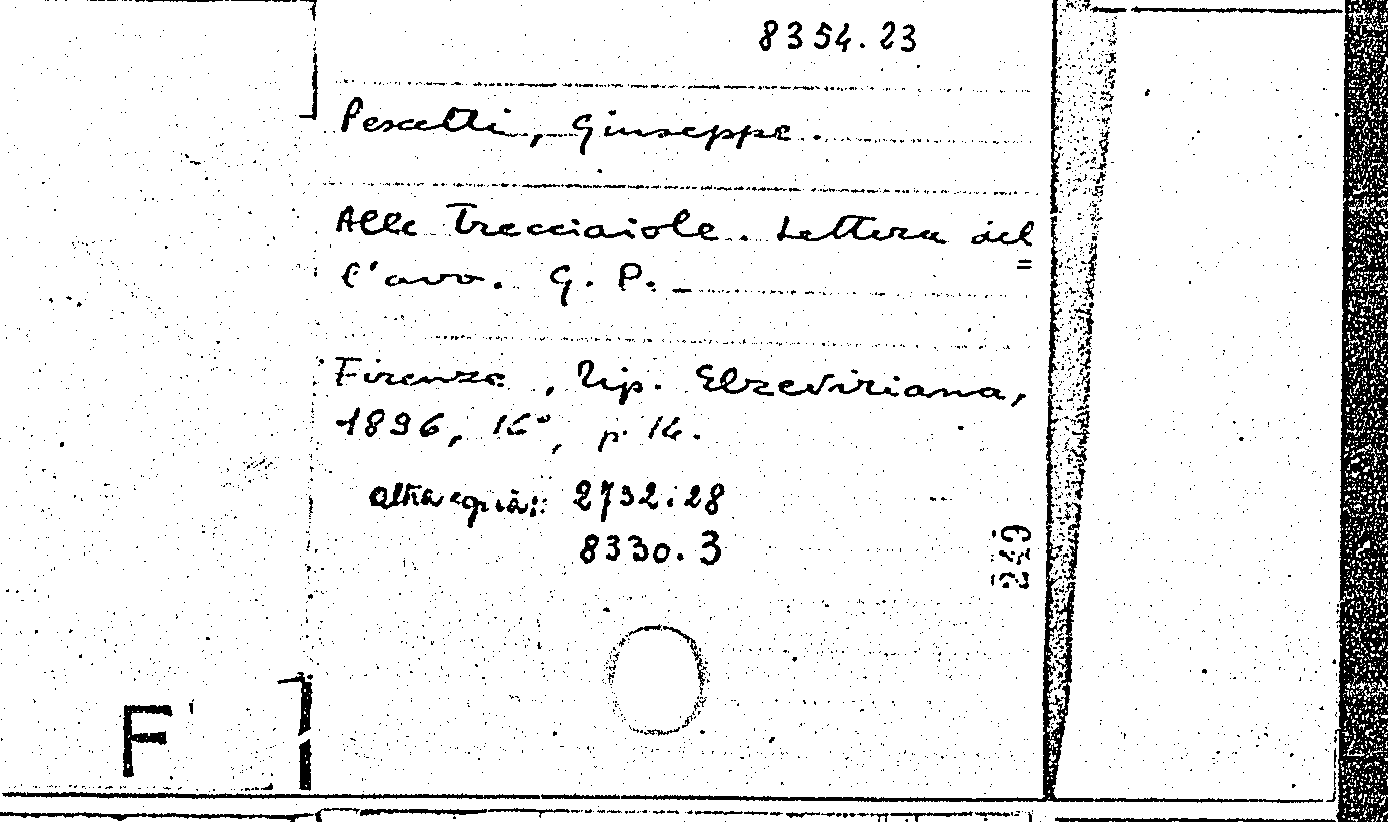 8354.23
Pescetti, Giuseppe.
Alle Trecciaiole. Lettera del=
l'avv. G. P. –
Firenze, Tip. Elzeviriana,
1896, 16°, p. 14.
altra copia: 2732.28
8330.3
249
F